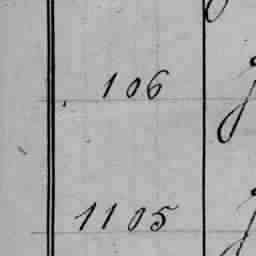 106
1105